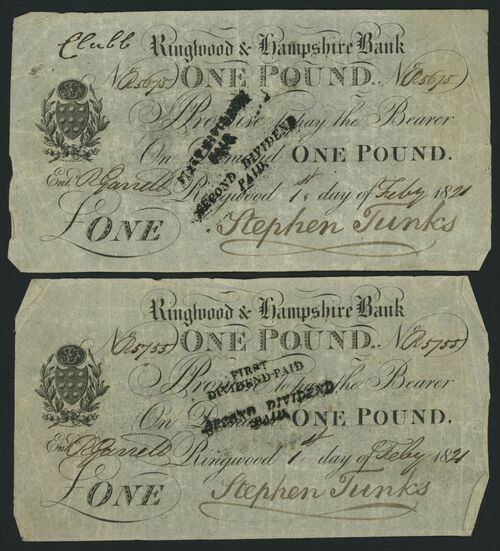 Clubb
Ringwood & Hampshire Bank
No A5675 ONE POUND. No A5675
I Promise to pay the Bearer
On Demand ONE POUND.
FIRST DIVIDEND
PAID
SECOND DIVIDEND
PAID
Entd R Garrett Ringwood 1st day of Feby 1821
£ONE Stephen Tunks
Ringwood & Hampshire Bank
No A5755 ONE POUND. No A5755
I Promise to pay the Bearer
FIRST
DIVIDEND PAID
SECOND DIVIDEND
PAID
On Demand ONE POUND.
Entd R Garrett Ringwood 1st day of Feby 1821
£ONE Stephen Tunks